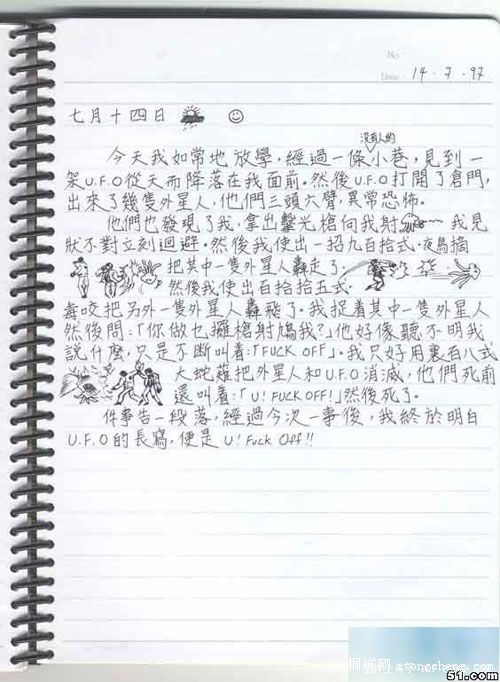 No.
Date. 14.7.97
七月十四日
沒有人的
今天我如常地放學,經過一條小巷,見到一
架U.F.O從天而降落在我面前。然後U.F.O打開了倉門,
出來了幾隻外星人,他們三頭六臂,異常恐怖。
他們也發現了我,拿出鐳光槍向我射 我見
狀不對立刻迴避。然後我使出一招九百拾式.夜鳥摘
把其中一隻外星人轟走了。
然後我使出百拾拾五式.
毒咬把另外一隻外星人轟飛了。我捉着其中一隻外星人
然後問:「你做乜攞槍射鳩我?」他好像聽不明我
說什麼,只是不斷叫着:「FUCK OFF」。我只好用裏百八式
大蛇薙把外星人和U.F.O消滅,他們死前
還叫着:「U! FUCK OFF!」然後死了。
件事告一段落,經過今次一事後,我終於明白
U.F.O的長寫,便是 U! Fuck Off!!
itongcheng.com
51.com